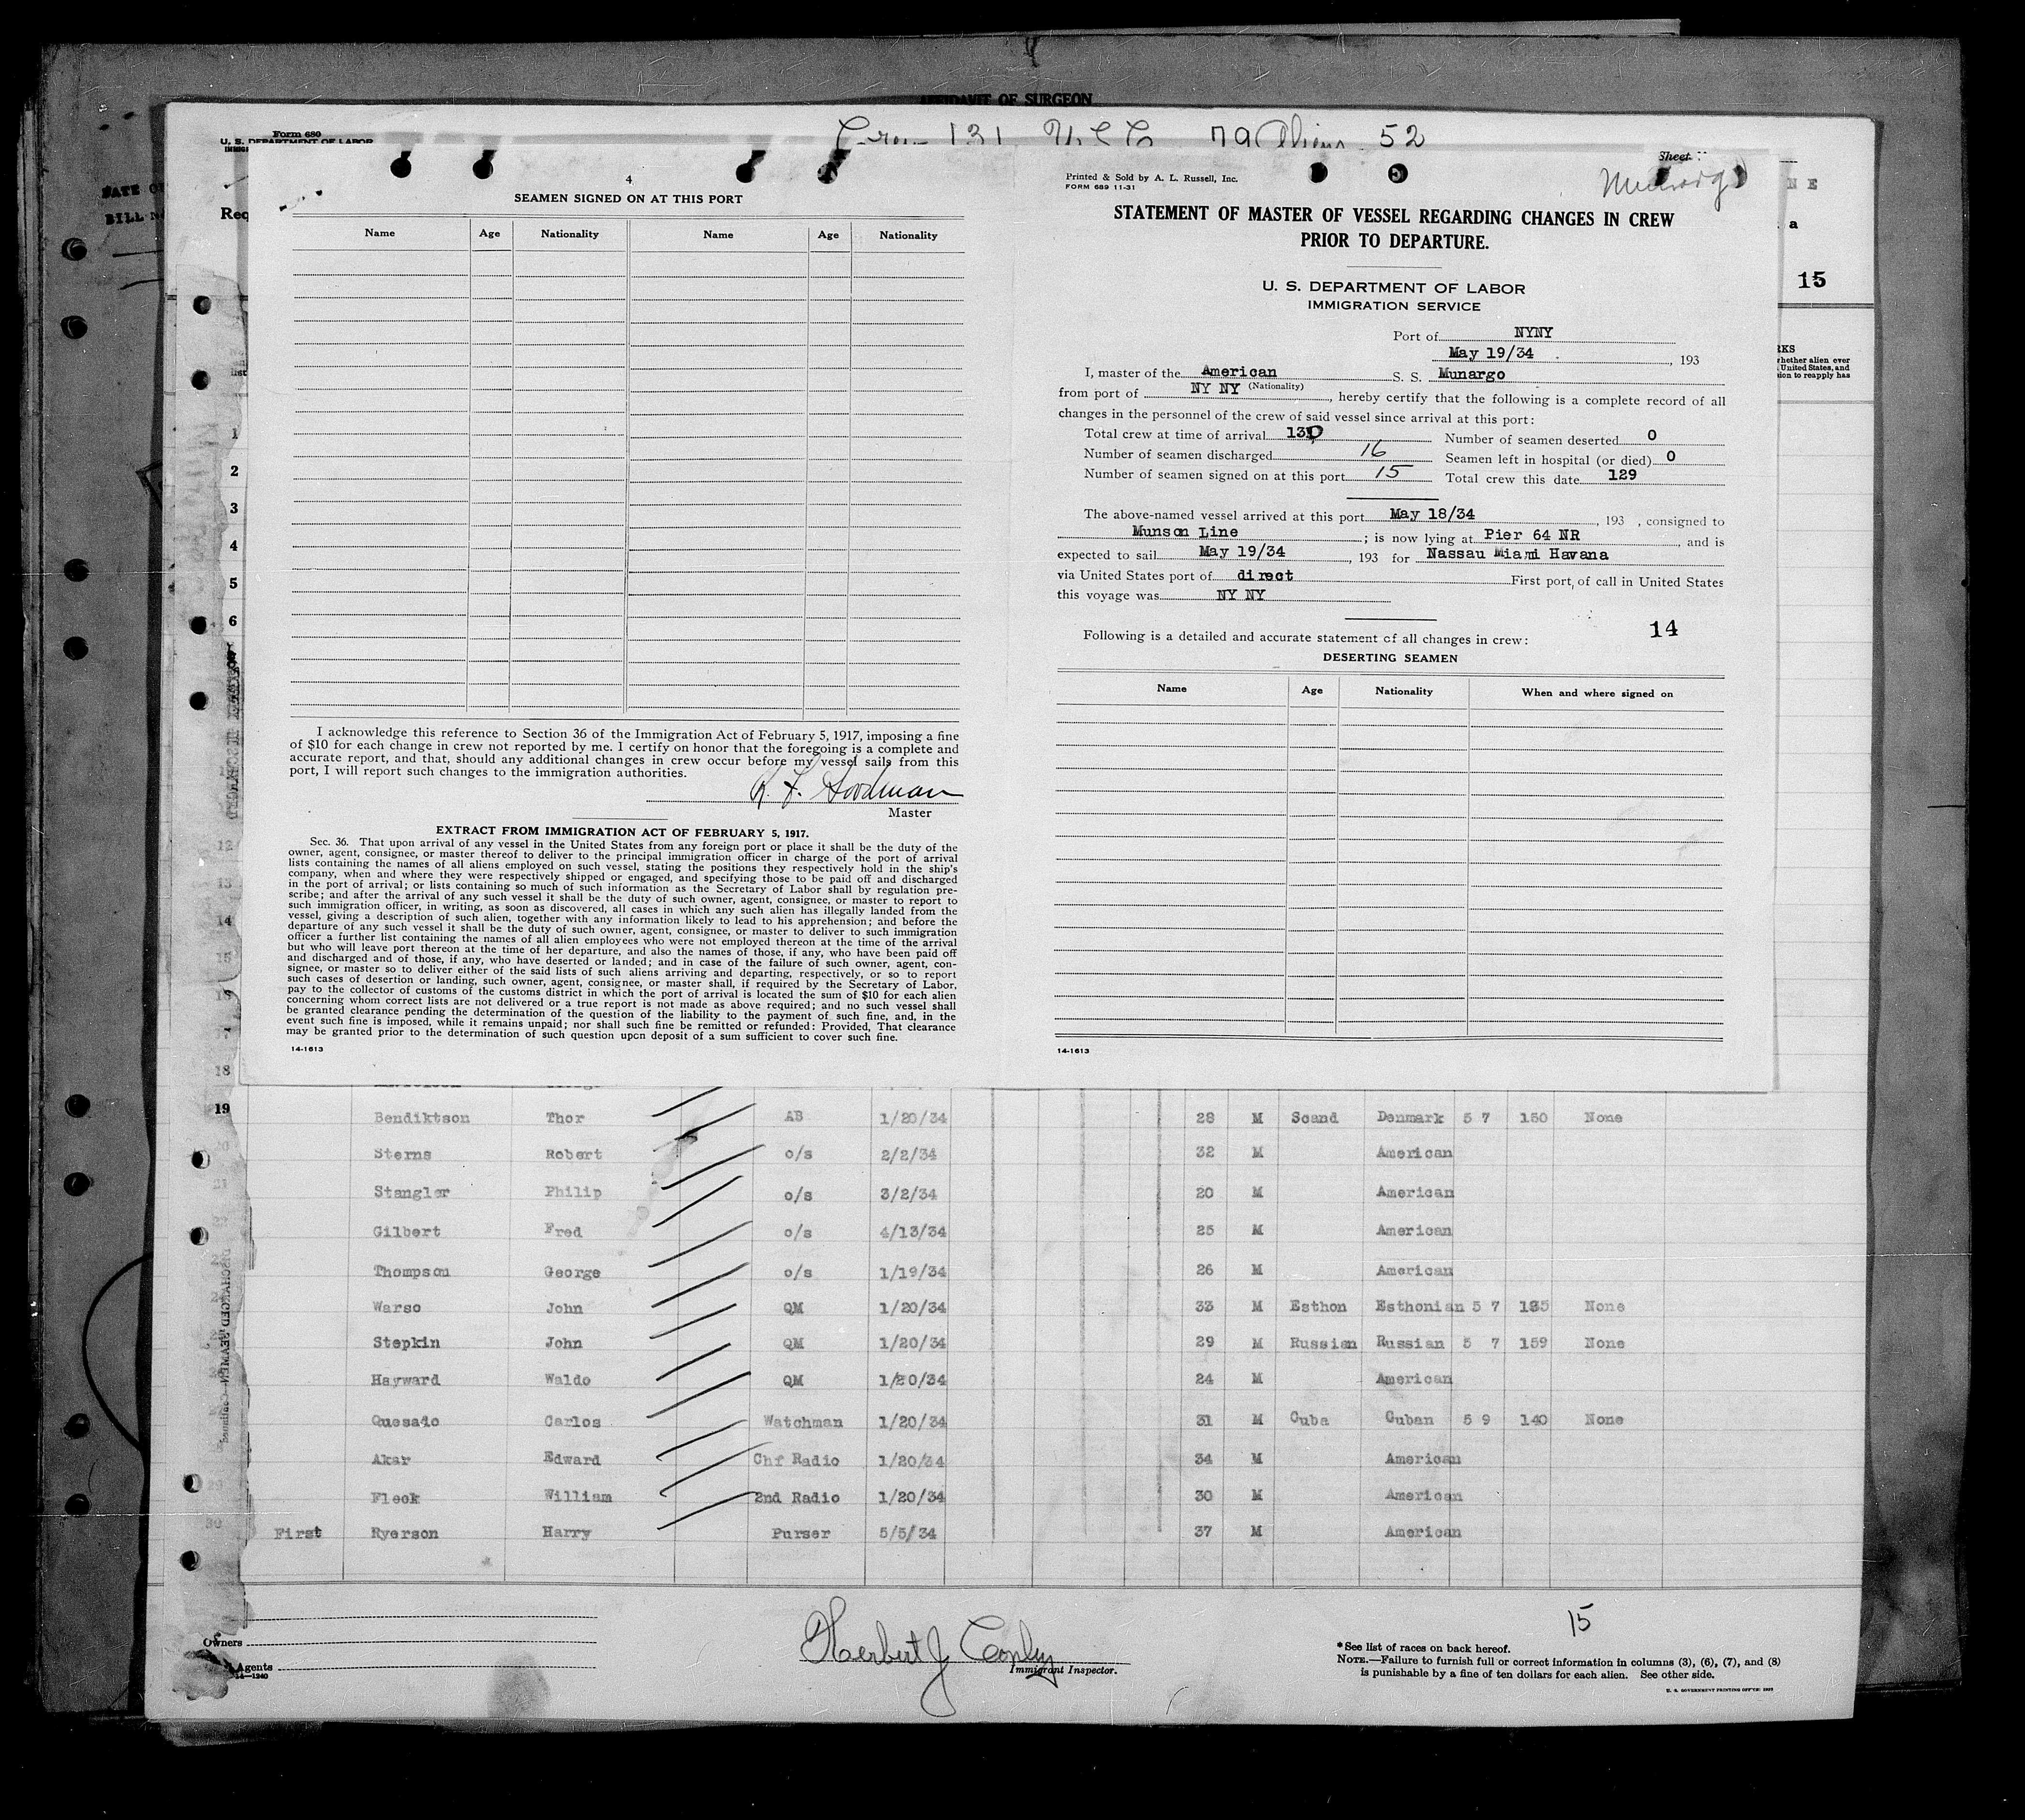 AFFIDAVIT OF SURGEON
Form 680
U. S. DEPARTMENT OF LABOR
Crew 131 USC 79 Aliens 52
Sheet
Munargo
DATE OF
BILL
Req
N E
a
15
RKS
whether alien ever
United States, and
ion to reapply has
4
SEAMEN SIGNED ON AT THIS PORT
Name Age Nationality Name Age Nationality
I acknowledge this reference to Section 36 of the Immigration Act of February 5, 1917, imposing a fine
of $10 for each change in crew not reported by me. I certify on honor that the foregoing is a complete and
accurate report, and that, should any additional changes in crew occur before my vessel sails from this
port, I will report such changes to the immigration authorities.
R. F. Goodman
Master
EXTRACT FROM IMMIGRATION ACT OF FEBRUARY 5, 1917.
Sec. 36. That upon arrival of any vessel in the United States from any foreign port or place it shall be the duty of the
owner, agent, consignee, or master thereof to deliver to the principal immigration officer in charge of the port of arrival
lists containing the names of all aliens employed on such vessel, stating the positions they respectively hold in the ship's
company, when and where they were respectively shipped or engaged, and specifying those to be paid off and discharged
in the port of arrival; or lists containing so much of such information as the Secretary of Labor shall by regulation pre-
scribe; and after the arrival of any such vessel it shall be the duty of such owner, agent, consignee, or master to report to
such immigration officer, in writing, as soon as discovered, all cases in which any such alien has illegally landed from the
vessel, giving a description of such alien, together with any information likely to lead to his apprehension; and before the
departure of any such vessel it shall be the duty of such owner, agent, consignee, or master to deliver to such immigration
officer a further list containing the names of all alien employees who were not employed thereon at the time of the arrival
but who will leave port thereon at the time of her departure, and also the names of those, if any, who have been paid off
and discharged and of those, if any, who have deserted or landed; and in case of the failure of such owner, agent, con-
signee, or master so to deliver either of the said lists of such aliens arriving and departing, respectively, or so to report
such cases of desertion or landing, such owner, agent, consignee, or master shall, if required by the Secretary of Labor,
pay to the collector of customs of the customs district in which the port of arrival is located the sum of $10 for each alien
concerning whom correct lists are not delivered or a true report is not made as above required; and no such vessel shall
be granted clearance pending the determination of the question of the liability to the payment of such fine, and, in the
event such fine is imposed, while it remains unpaid; nor shall such fine be remitted or refunded: Provided, That clearance
may be granted prior to the determination of such question upon deposit of a sum sufficient to cover such fine.
14-1613
Printed & Sold by A. L. Russell, Inc.
FORM 689 11-31
STATEMENT OF MASTER OF VESSEL REGARDING CHANGES IN CREW
PRIOR TO DEPARTURE.
U. S. DEPARTMENT OF LABOR
IMMIGRATION SERVICE
Port of NYNY
May 19/34 , 193
I, master of the American S. S. Munargo
from port of NY NY (Nationality) , hereby certify that the following is a complete record of all
changes in the personnel of the crew of said vessel since arrival at this port:
Total crew at time of arrival 130 Number of seamen deserted 0
Number of seamen discharged 16 Seamen left in hospital (or died) 0
Number of seamen signed on at this port 15 Total crew this date 129
The above-named vessel arrived at this port May 18/34 , 193 , consigned to
Munson Line ; is now lying at Pier 64 NR , and is
expected to sail May 19/34 , 193 for Nassau Miami Havana
via United States port of direct First port of call in United States
this voyage was NY NY
14
Following is a detailed and accurate statement of all changes in crew:
DESERTING SEAMEN
Name Age Nationality When and where signed on
14-1613
1
2
3
4
5
6
12
13
14
15
16
17
18
19 Bendiktson Thor AB 1/20/34 28 M Scand Denmark 5 7 150 None
20 Sterns Robert o/s 2/2/34 32 M American
21 Stangler Philip o/s 3/2/34 20 M American
Gilbert Fred o/s 4/13/34 25 M American
Thompson George o/s 1/19/34 26 M American
Warso John QM 1/20/34 33 M Esthon Esthonian 5 7 135 None
Stepkin John QM 1/20/34 29 M Russian Russian 5 7 159 None
Hayward Waldo QM 1/20/34 24 M American
Quesado Carlos Watchman 1/20/34 31 M Cuba Cuban 5 9 140 None
Akar Edward Chf Radio 1/20/34 34 M American
29 Fleck William 2nd Radio 1/20/34 30 M American
30 First Ryerson Harry Purser 5/5/34 37 M American
15
Owners
Agents
14—1240
Herbert J Conley
Immigrant Inspector.
*See list of races on back hereof.
NOTE.—Failure to furnish full or correct information in columns (3), (6), (7), and (8)
is punishable by a fine of ten dollars for each alien. See other side.
U. S. GOVERNMENT PRINTING OFFICE: 1932